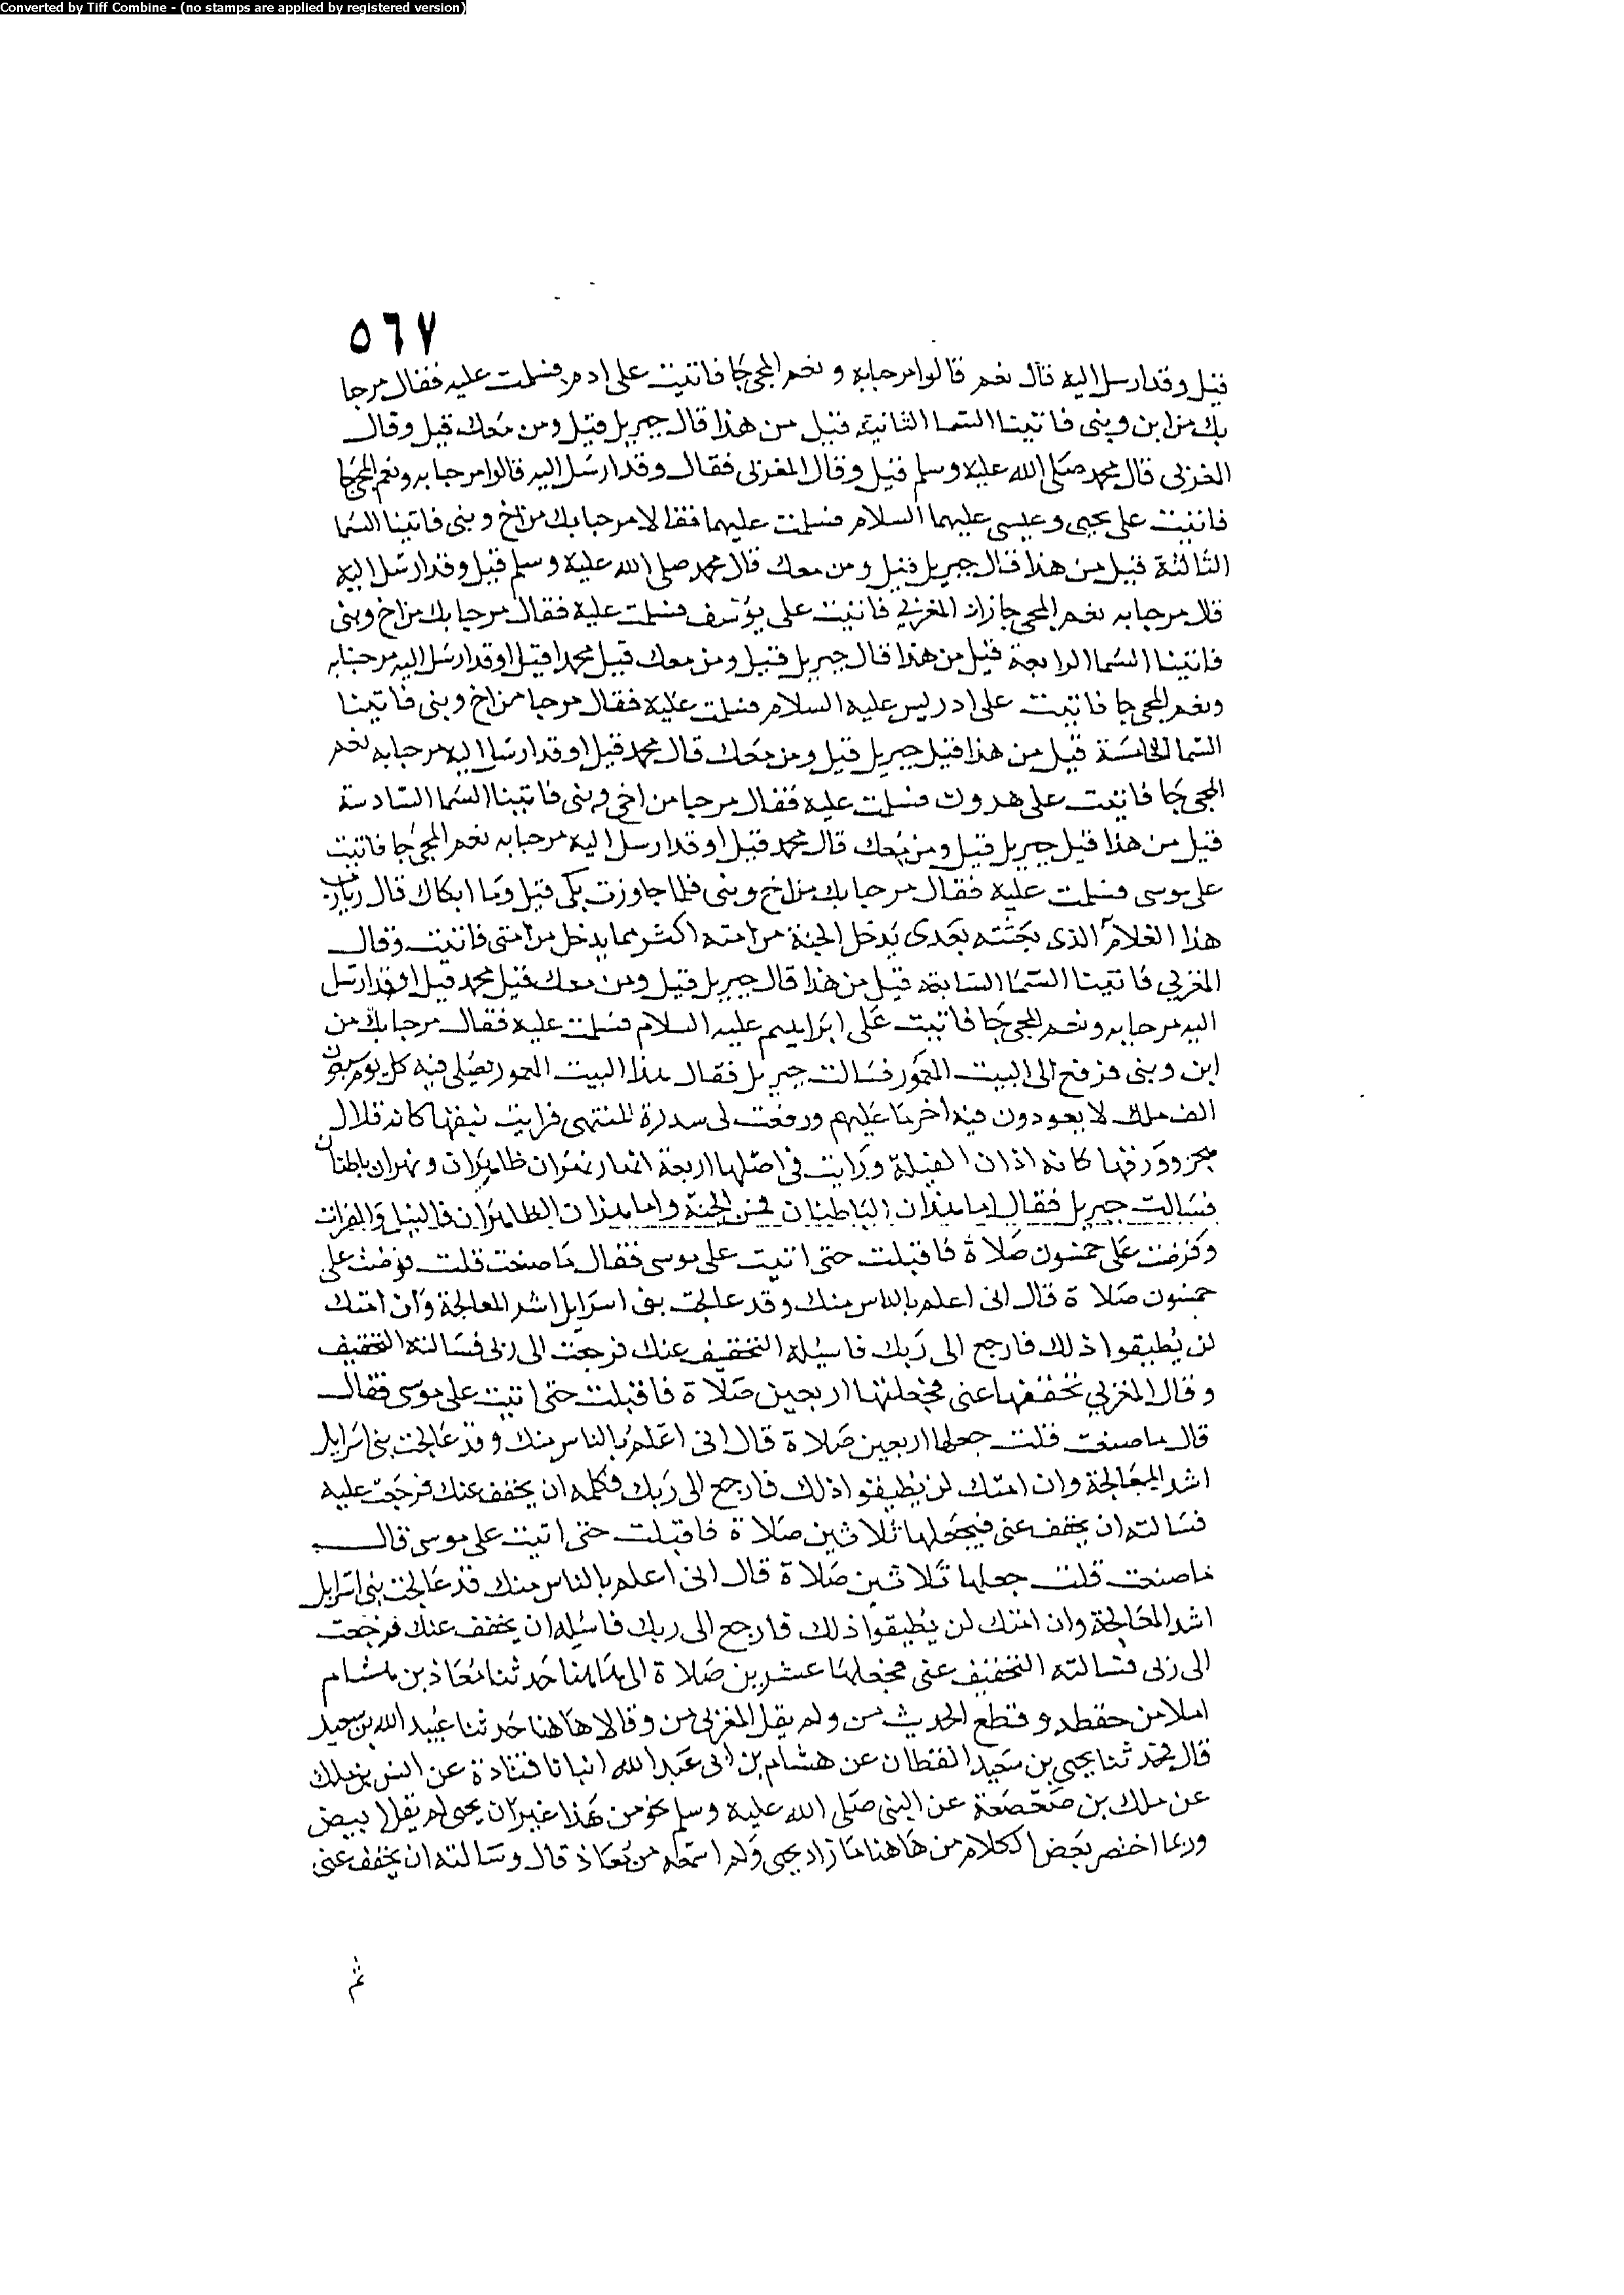 Converted by Tiff Combine - (no stamps are applied by registered version)
٥٦٧
قيل وقد ارسل اليه قال نعم قالوا مرحبا به ونعم المجئ جا فاتيت على ادم فسلمت عليه فقال مرحبا
بك من ابن ونبى فاتينا السما الثانية قيل من هذا قال جبريل قيل ومن معك قيل وقال
المغزلى قال محمد صلى الله عليه وسلم قيل وقال المغزلى فقال وقد ارسل اليه قالوا مرحبا به ونعم المجئ جا
فاتيت على يحيى وعيسى عليهما السلام فسلمت عليهما فقالا مرحبا بك من اخ ونبى فاتينا السما
الثالثة قيل من هذا قال جبريل قيل ومن معك قال محمد صلى الله عليه وسلم قيل وقد ارسل اليه
قلا مرحبا به نعم المجئ جا زاد المغزلي فاتيت على يوسف فسلمت عليه فقال مرحبا بك من اخ ونبى
فاتينا السما الرابعة قيل من هذا قال جبريل قيل ومن معك قيل محمد اقيل اوقد ارسل اليه مرحبا به
ونعم المجئ جا فاتيت على ادريس عليه السلام فسلمت عليه فقال مرحبا من اخ ونبى فاتينا
السما الخامسة قيل من هذا قيل جبريل قيل ومن معك قال محمد قيل اوقد ارسل اليه مرحبا به نعم
المجئ جا فاتيت على هرون فسلمت عليه فقال مرحبا من اخى ونبى فاتينا السما السادسة
قيل من هذا قيل جبريل قيل ومن معك قال محمد قيل اوقد ارسل اليه مرحبا به نعم المجئ جا فاتيت
على موسى فسلمت عليه فقال مرحبا بك من اخ ونبى فلما جاوزت بكى قيل وما ابكاك قال رب يارب
هذا الغلام الذى بعثته بعدى يدخل الجنة من امته اكثر مما يدخل من امتى فاتيت وقال
المغزلي فاتينا السما السابعة قيل من هذا قال جبريل قيل ومن معك قيل محمد قيل اوقد ارسل
اليه مرحبا به ونعم المجئ جا فاتيت على ابراهيم عليه السلام فسلمت عليه فقال مرحبا بك من
ابن ونبى فرفع الى البيت المعمور فسالت جبريل فقال هذا البيت المعمور يصلى فيه كل يوم سبعون
الف ملك لا يعودون فيه اخر ما عليهم ورفعت لى سدرة المنتهى فرايت نبقها كانه قلال
هجر وورقها كانه اذان الفيلة ورايت فى اصلها اربعة انهار نهران ظاهران ونهران باطنان
فسالت جبريل فقال اما هذان الباطنان فمن الجنة واما هذان الظاهران فالنيل والفرات
وفرضت على خمسون صلاة فاقبلت حتى اتيت على موسى فقال ما صنعت قلت فرضت على
خمسون صلاة قال انى اعلم بالناس منك وقد عالجت بنى اسرايل اشد المعالجة وان امتك
لن يطيقوا ذلك فارجع الى ربك فاسيله التخفيف عنك فرجعت الى ربى فسالته التخفيف
وقال المغزلي تخففها عنى فجعلتها اربعين صلاة فاقبلت حتى اتيت على موسى فقال
قال ما صنعت قلت جعلها اربعين صلاة قال انى اعلم بالناس منك وقد عالجت بنى اسرايل
اشد المعالجة وان امتك لن يطيقوا ذلك فارجع الى ربك فكلمه ان يخفف عنك فرجعت عليه
فسالته ان يخفف عنى فيجعلها ثلاثين صلاة فاقبلت حتى اتيت على موسى قال
ما صنعت قلت جعلها ثلاثين صلاة قال انى اعلم بالناس منك قد عالجت بنى اسرايل
اشد المعالجة وان امتك لن يطيقوا ذلك فارجع الى ربك فاسيله ان يخفف عنك فرجعت
الى ربى فسالته التخفيف عنى فجعلها عشرين صلاة الى هاهنا حدثنا معاذ بن هشام
املا من حفظه وقطع الحديث من ولم يقل المغزلى من وقالا هاهنا حدثنا عبيد الله بن سعيد
قال حدثنا يحيى بن سعيد القطان عن هشام بن ابى عبد الله انبانا قتادة عن انس بن ملك
عن ملك بن صعصعة عن النبى صلى الله عليه وسلم نحو من هذا غير ان يحيى لم يقل
وربما اختصر بعض الكلام من هاهنا ما زاد يحيى ولم اسمعه من معاذ قال وسالته ان يخفف عنى
ثم